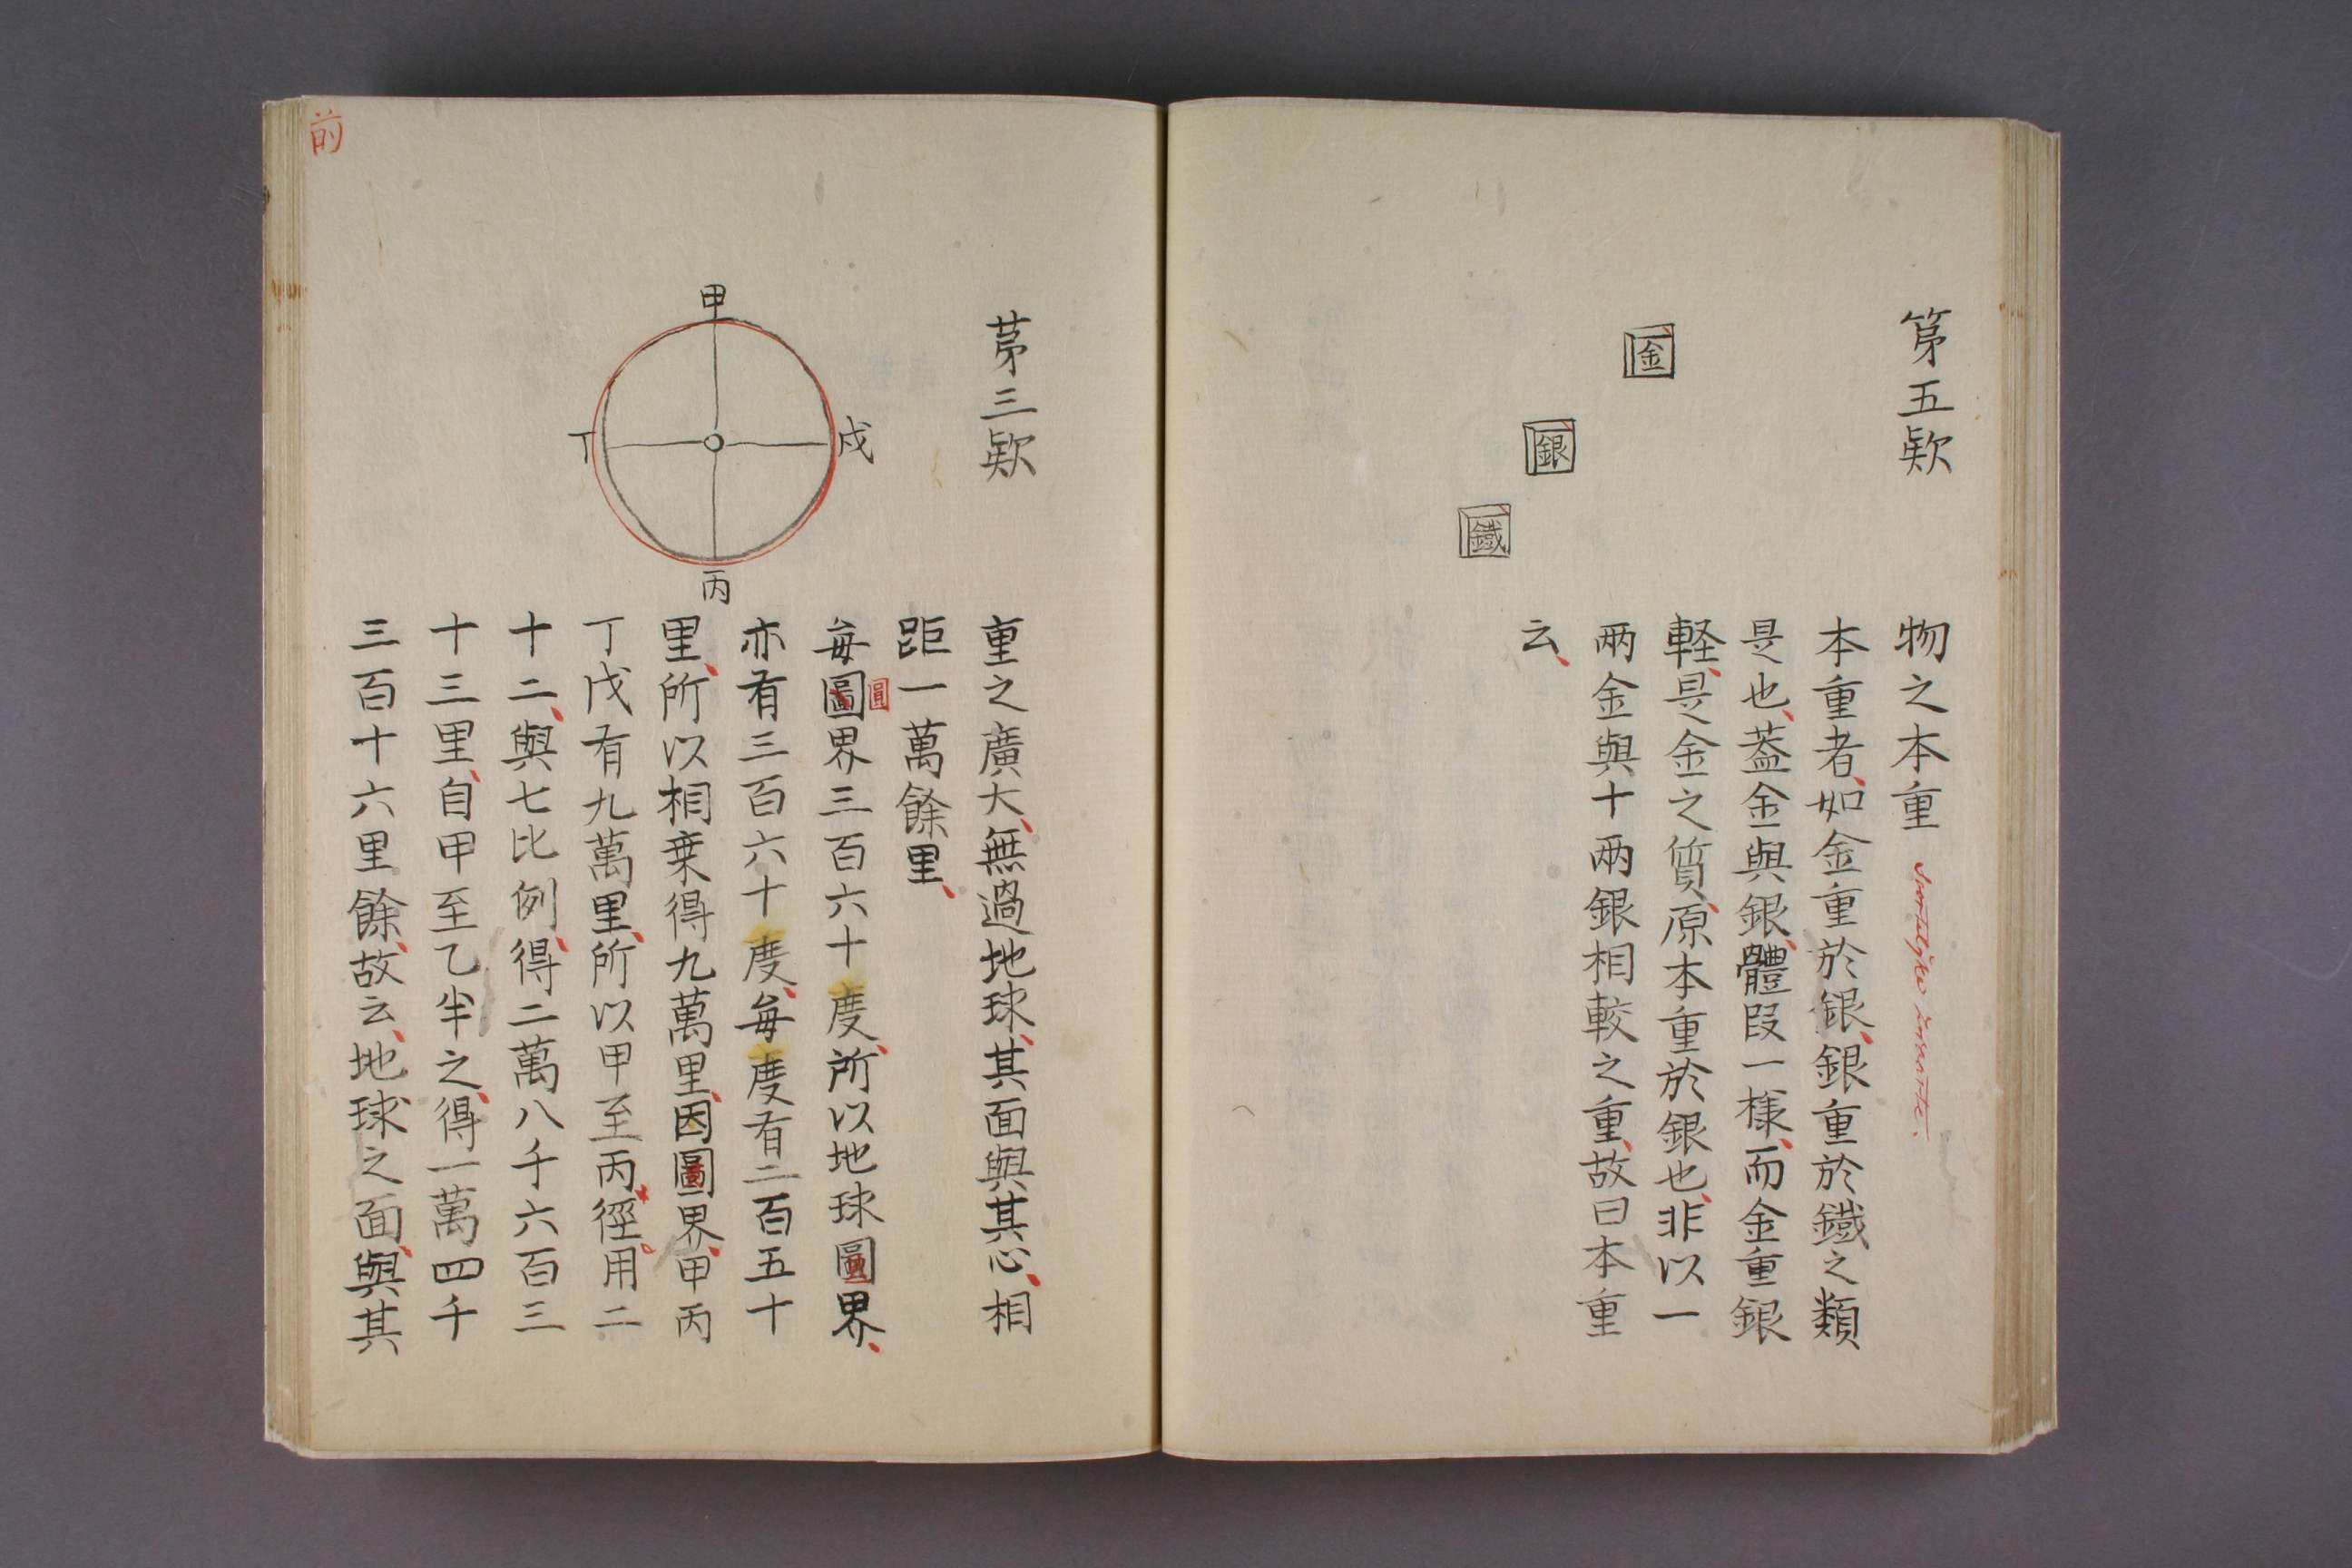 第五欵
金
銀
鐵
物之本重
本重者、如金重於銀、銀重於鐵之類
是也、蓋金與銀、體段一樣、而金重銀
軽、是金之質、原本重於銀也、非以一
兩金與十兩銀相較之重、故曰本重
云、
苐三欵
甲
戍
丁
丙
重之廣大、無過地球、其面與其心、相
距一萬餘里、
每圖界三百六十度、所以地球圖界、
圓
亦有三百六十度、每度有二百五十
里、所以相乗得九萬里、因圖界、甲丙
丁戊有九萬里、所以甲至丙徑用二
十二、與七比例、得二萬八千六百三
十三里、自甲至乙半之、得一萬四千
三百十六里餘、故云、地球之面、與其
前